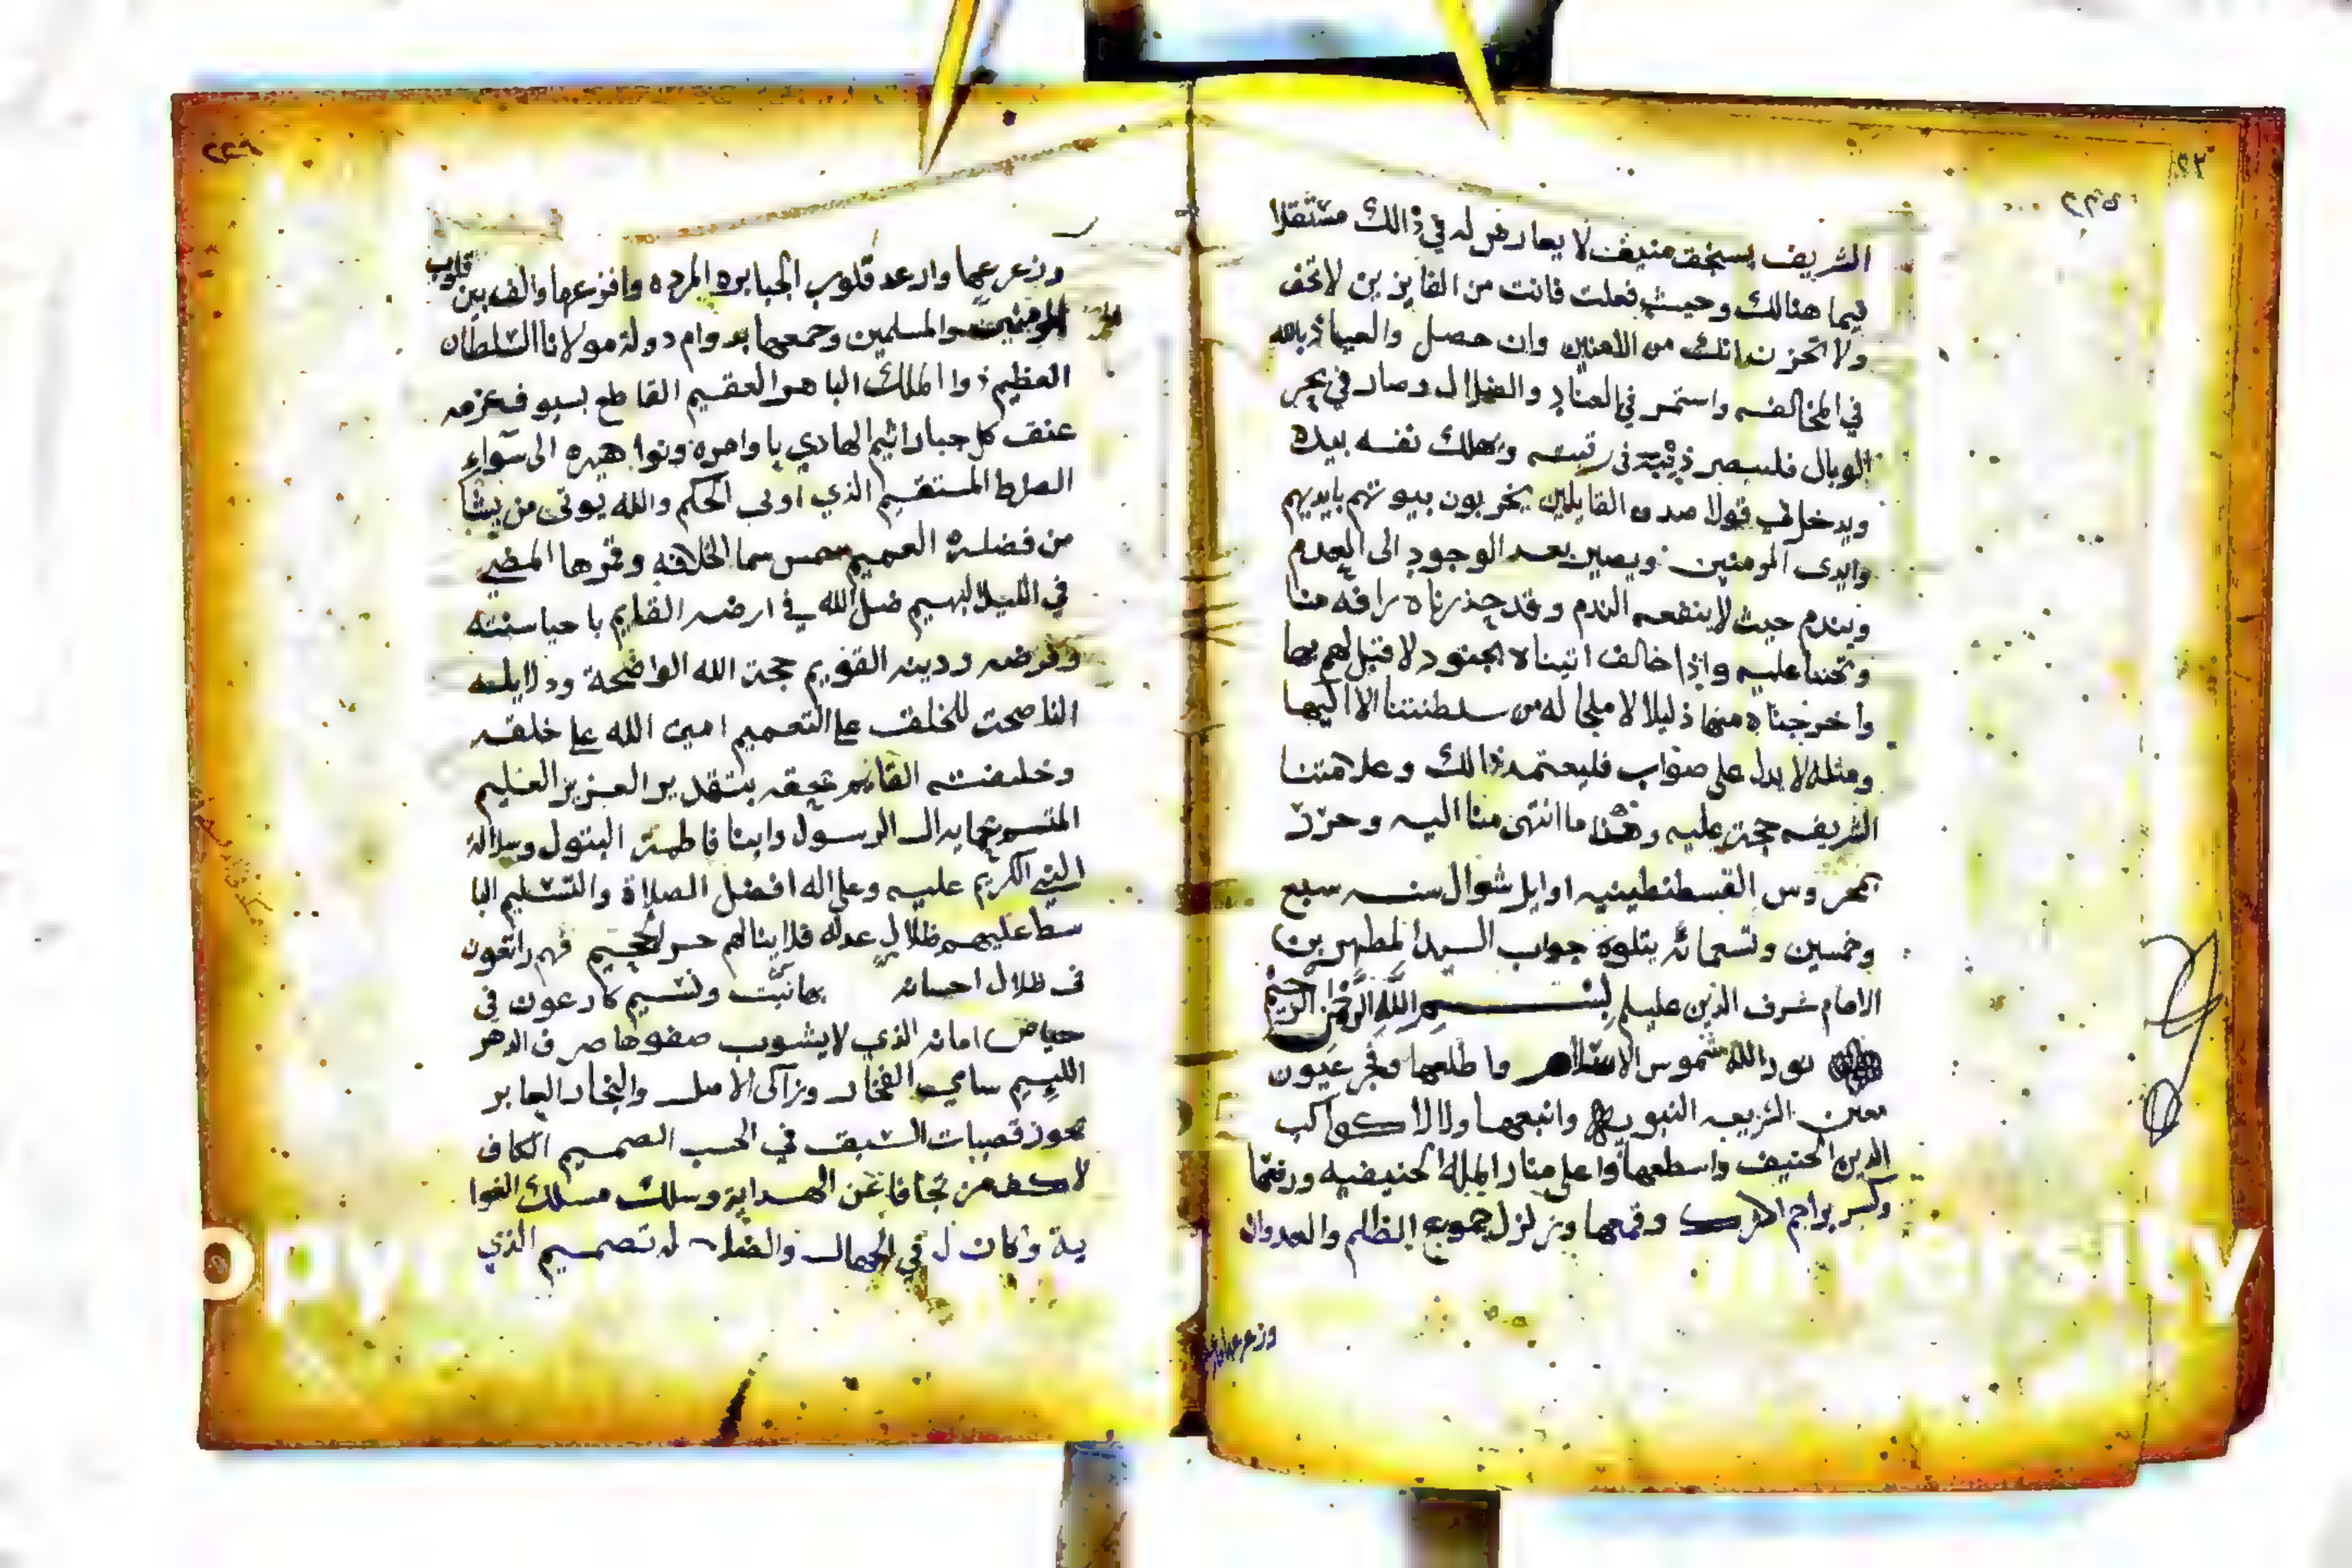 ٢٢٥
الشريف بسنجق منيف لا يعارض له في ذالك مستقلا
فيما هنالك وحيث فعلت فانت من الفايزين لا تخف
ولا تحزن انك من الامنين وان حصل والعياذ بالله
في المخالفه واستمر في العناد والضلال وصار في بحر
الوبال فليصير ذنبه في رقبته ويهلك نفسه بيده
ويدخل في قول اصدق القايلين يخربون بيوتهم بايديهم
وايدى المومنين ويصير بعد الوجود الى العدم
ويندم حيث لا ينفعه الندم وقد حذرناه رافه منا
وتحننا عليه واذا خالف اتيناه بجنود لا قبل لهم بها
واخرجناه منها ذليلا لا ملجا له من سلطنتنا الا اليها
ومثله لا يدل على صواب فليعتمد ذالك وعلامتنا
الشريفه حجة عليه وهذا ما انتهى منا اليه وحرر
بمحروس القسطنطينيه اوايل شوال سنه سبع
وخمسين وتسعمائة يتلوه جواب السيد المطهر بن
الامام شرف الدين عليلم بسم الله الرحمن الرحيم
نور الله شموس الاسلام واطلعها وفجر عيون
معين الشريعه النبويه وانبعها ولالا كواكب
الدين الحنيف واسطعها واعلى منار المله الحنيفيه ورفعها
وكسر براجم الشرك وقمعها وزلزل جموع الظلم والعدوان
وزعرعها
٢٢٦
وزعرعها وارعد قلوب الجبابره المرده وافزعها والف بين قلوب
المومنين والمسلمين وجمعها بدوام دولة مولانا السلطان
العظيم ذوا الملك الباهر العقيم القاطع بسيوف عزمه
عنق كل جبار اثيم الهادي باوامره ونواهيه الى سواء
الصراط المستقيم الذي اوتى الحكم والله يوتى من يشا
من فضله العميم شمس سما الخلافه وقمرها المضي
في الليل البهيم ضل الله في ارضه القايم باحيا سنته
وفرضه ودينه القويم حجة الله الواضحة ودلايله
الناصحة للخلق على التعميم امين الله على خلقه
وخليفته القائم بحقه بتقدير العزيز العليم
المتسم بحمايه ال الرسول وابنا فاطمة البتول وسلالة
النبي الكريم عليه وعلى اله افضل الصلاة والتسليم البا
سط عليهم ظلال عدله فلا ينالهم حر الجحيم فهم راتعون
فى ظلال احسانه ونسيم كارعون في
حياض امانه الذي لا يشوب صفوها صرف الدهر
اللييم سامي الفخار وزاكى الاصل والنجار الحايز
بحوز قصبات السبق في الحسب الصميم الكاف
لاكف من تجافا عن الهداية وسلك مسلك الغوا
ية وكان له في الجهال والضلال له تصميم الذي